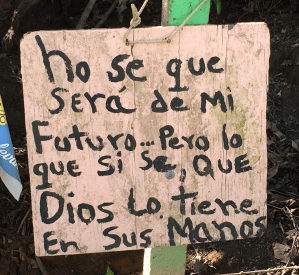 No se que
Será de Mi
Futuro... Pero lo
que si se, QUE
Dios Lo Tiene
En Sus Manos